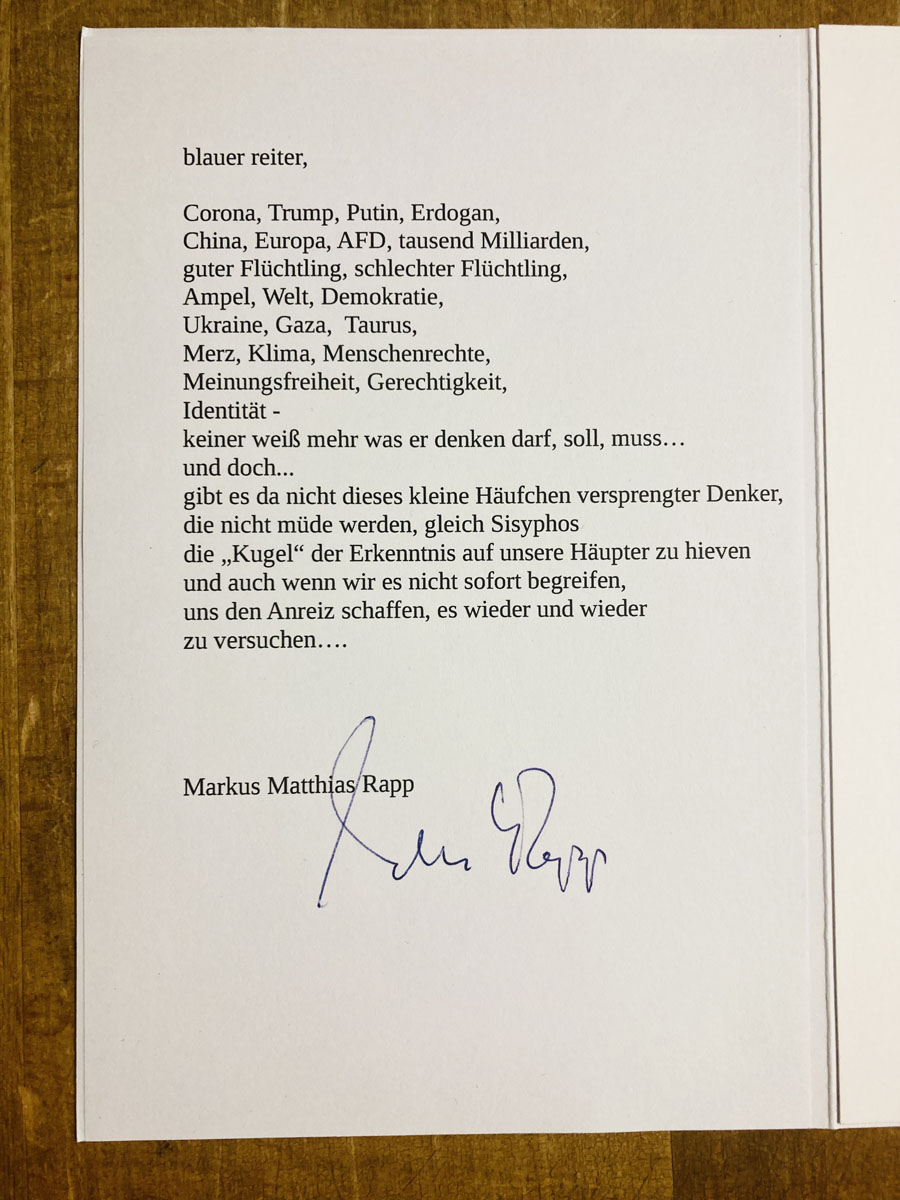 blauer reiter,
Corona, Trump, Putin, Erdogan,
China, Europa, AFD, tausend Milliarden,
guter Flüchtling, schlechter Flüchtling,
Ampel, Welt, Demokratie,
Ukraine, Gaza,  Taurus,
Merz, Klima, Menschenrechte,
Meinungsfreiheit, Gerechtigkeit,
Identität -
keiner weiß mehr was er denken darf, soll, muss…
und doch...
gibt es da nicht dieses kleine Häufchen versprengter Denker,
die nicht müde werden, gleich Sisyphos
die „Kugel“ der Erkenntnis auf unsere Häupter zu hieven
und auch wenn wir es nicht sofort begreifen,
uns den Anreiz schaffen, es wieder und wieder
zu versuchen….
Markus Matthias Rapp
Rapp